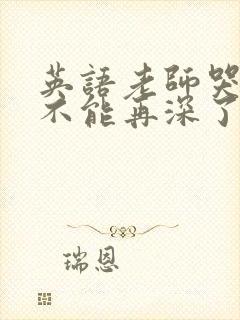 英語老師哭
不能再深了
瑞恩